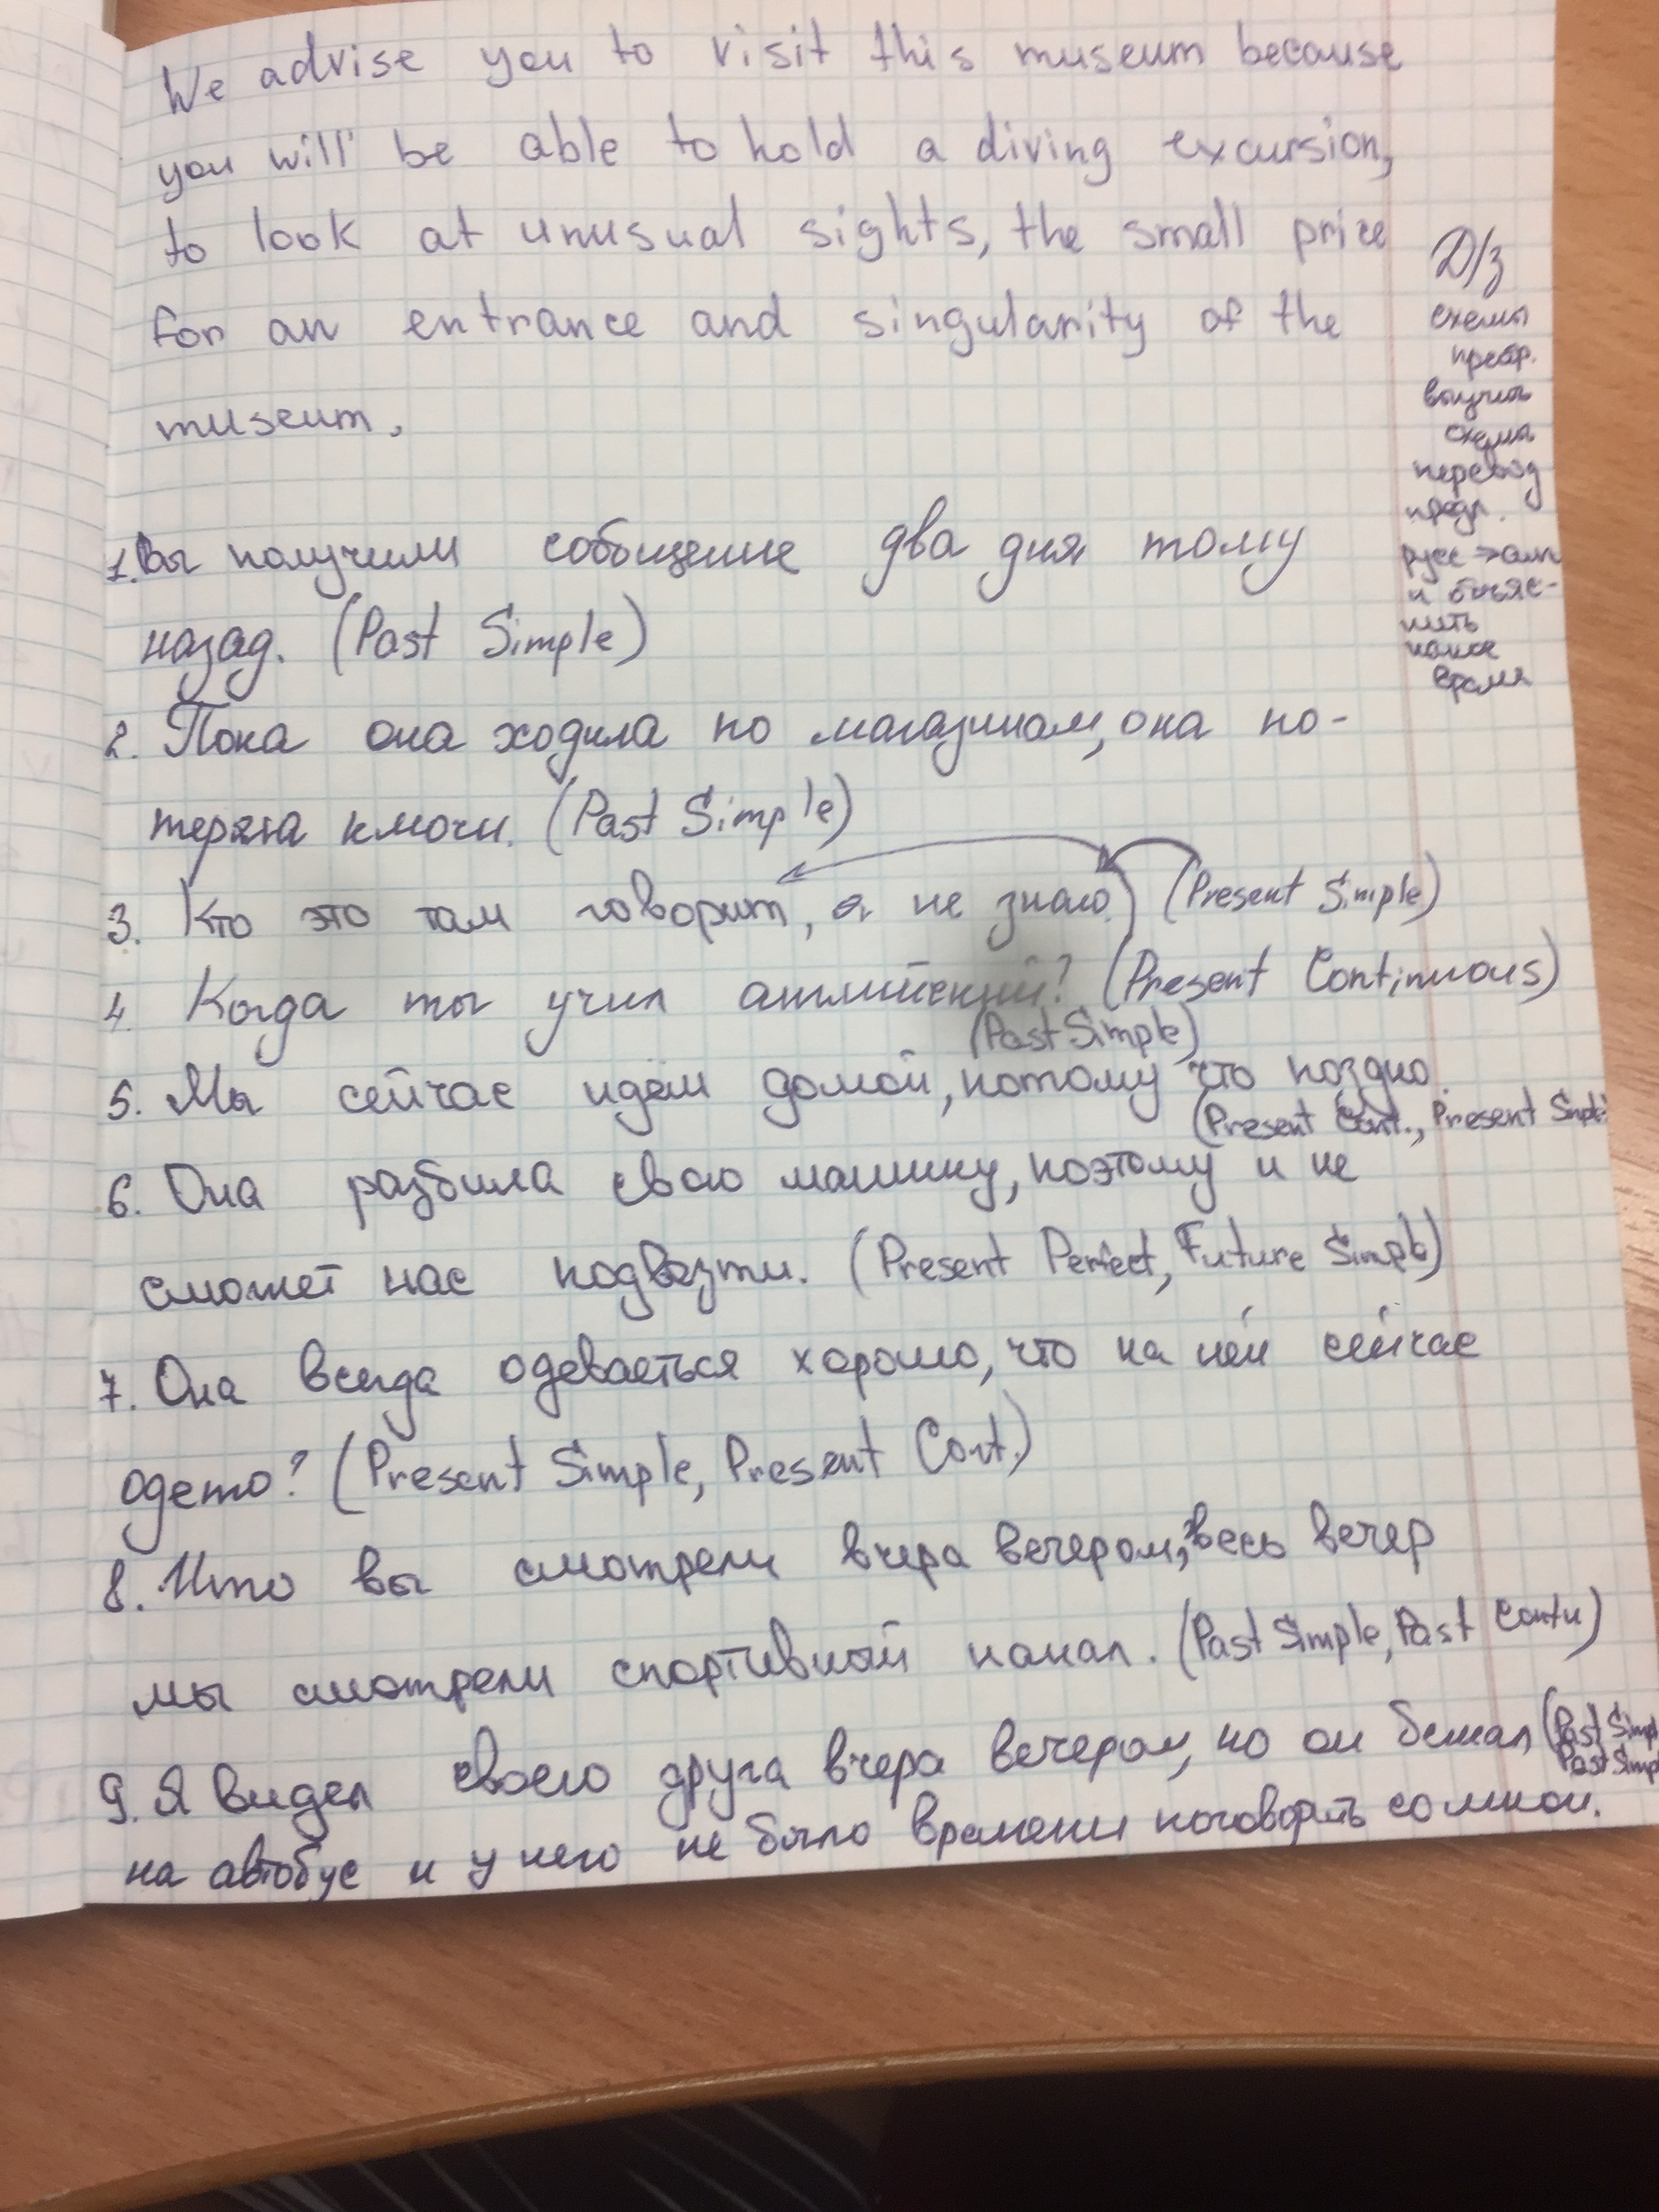 We advise you to visit this museum because
you will be able to hold a diving excursion,
to look at unusual sights, the small price
for an entrance and singularity of the
museum.
Д/з
схемы
предр.
выучить
схемы
перевод
предл.
русс → англ
и объяс-
нить
какое
время
1. Вы получили сообщение два дня тому
назад. (Past Simple)
2. Пока она ходила по магазинам, она по-
теряла ключи. (Past Simple)
3. Кто это там говорит, я не знаю. (Present Simple)
4. Когда ты учил английский? (Present Continuous)
(Past Simple)
5. Мы сейчас идём домой, потому что поздно.
(Present Cont., Present Simpl.
6. Она разбила свою машину, поэтому и не
сможет нас подвезти. (Present Perfect, Future Simple)
7. Она всегда одевается хорошо, что на ней сейчас
одето? (Present Simple, Present Cont.)
8. Что вы смотрели вчера вечером, весь вечер
мы смотрели спортивный канал. (Past Simple, Past Contu)
9. Я видел своего друга вчера вечером, но он бежал (Past Simpl
Past Simpl
на автобус и у него не было времени поговорить со мной.